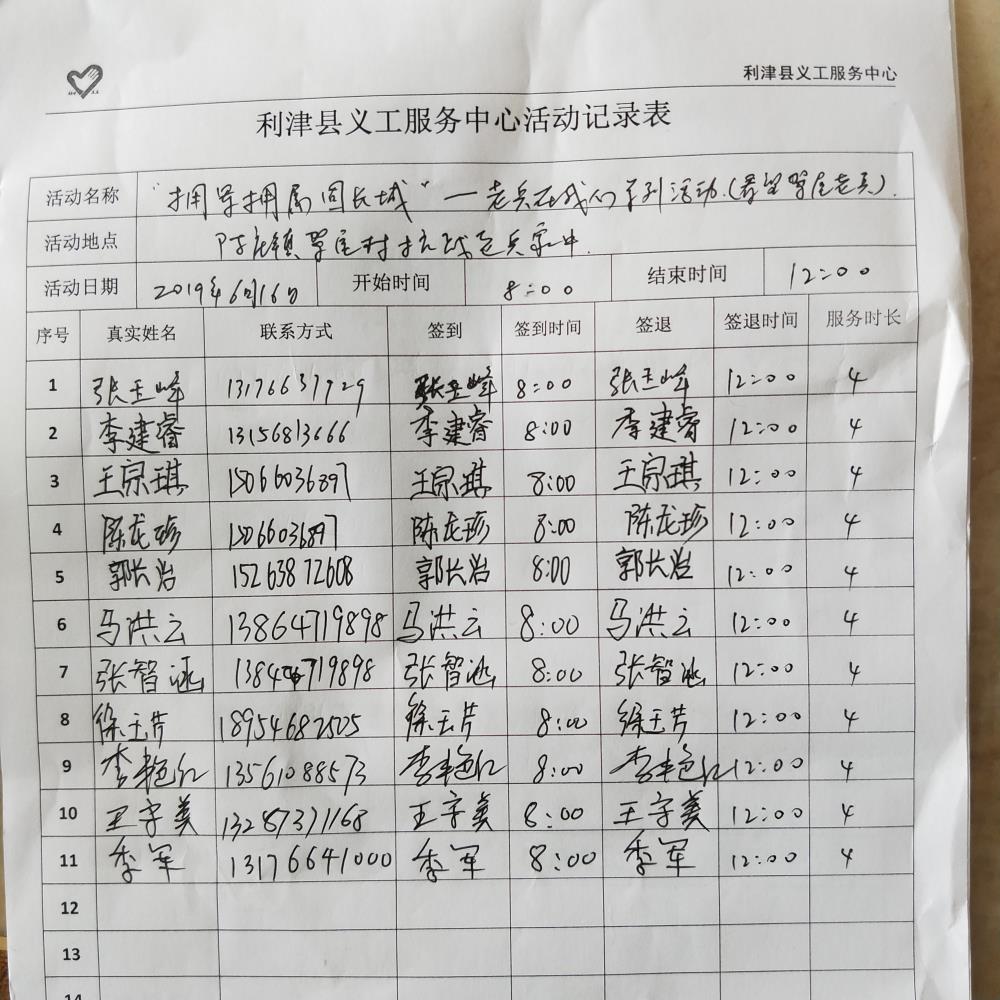 利津县义工服务中心
利津县义工服务中心活动记录表
活动名称 “拥军拥属固长城”—老兵在我们系列活动.(看望 老兵).
活动地点 陈庄镇 村抗战老兵家中.
活动日期 2019年6月16日 开始时间 8:00 结束时间 12:00
序号 真实姓名 联系方式 签到 签到时间 签退 签退时间 服务时长
1 张玉峰 13176637929 张玉峰 8:00 张玉峰 12:00 4
2 李建睿 13156813666 李建睿 8:00 李建睿 12:00 4
3 王宗琪 15066036897 王宗琪 8:00 王宗琪 12:00 4
4 陈龙珍 15066036897 陈龙珍 8:00 陈龙珍 12:00 4
5 郭长治 15263872608 郭长治 8:00 郭长治 12:00 4
6 马洪云 13864719898 马洪云 8:00 马洪云 12:00 4
7 张智涵 13864719898 张智涵 8:00 张智涵 12:00 4
8 徐玉芹 18954682505 徐玉芹 8:00 徐玉芹 12:00 4
9 李艳红 13561088573 李艳红 8:00 李艳红 12:00 4
10 王守美 13287371168 王守美 8:00 王守美 12:00 4
11 季军 13176641000 季军 8:00 季军 12:00 4
12
13
14